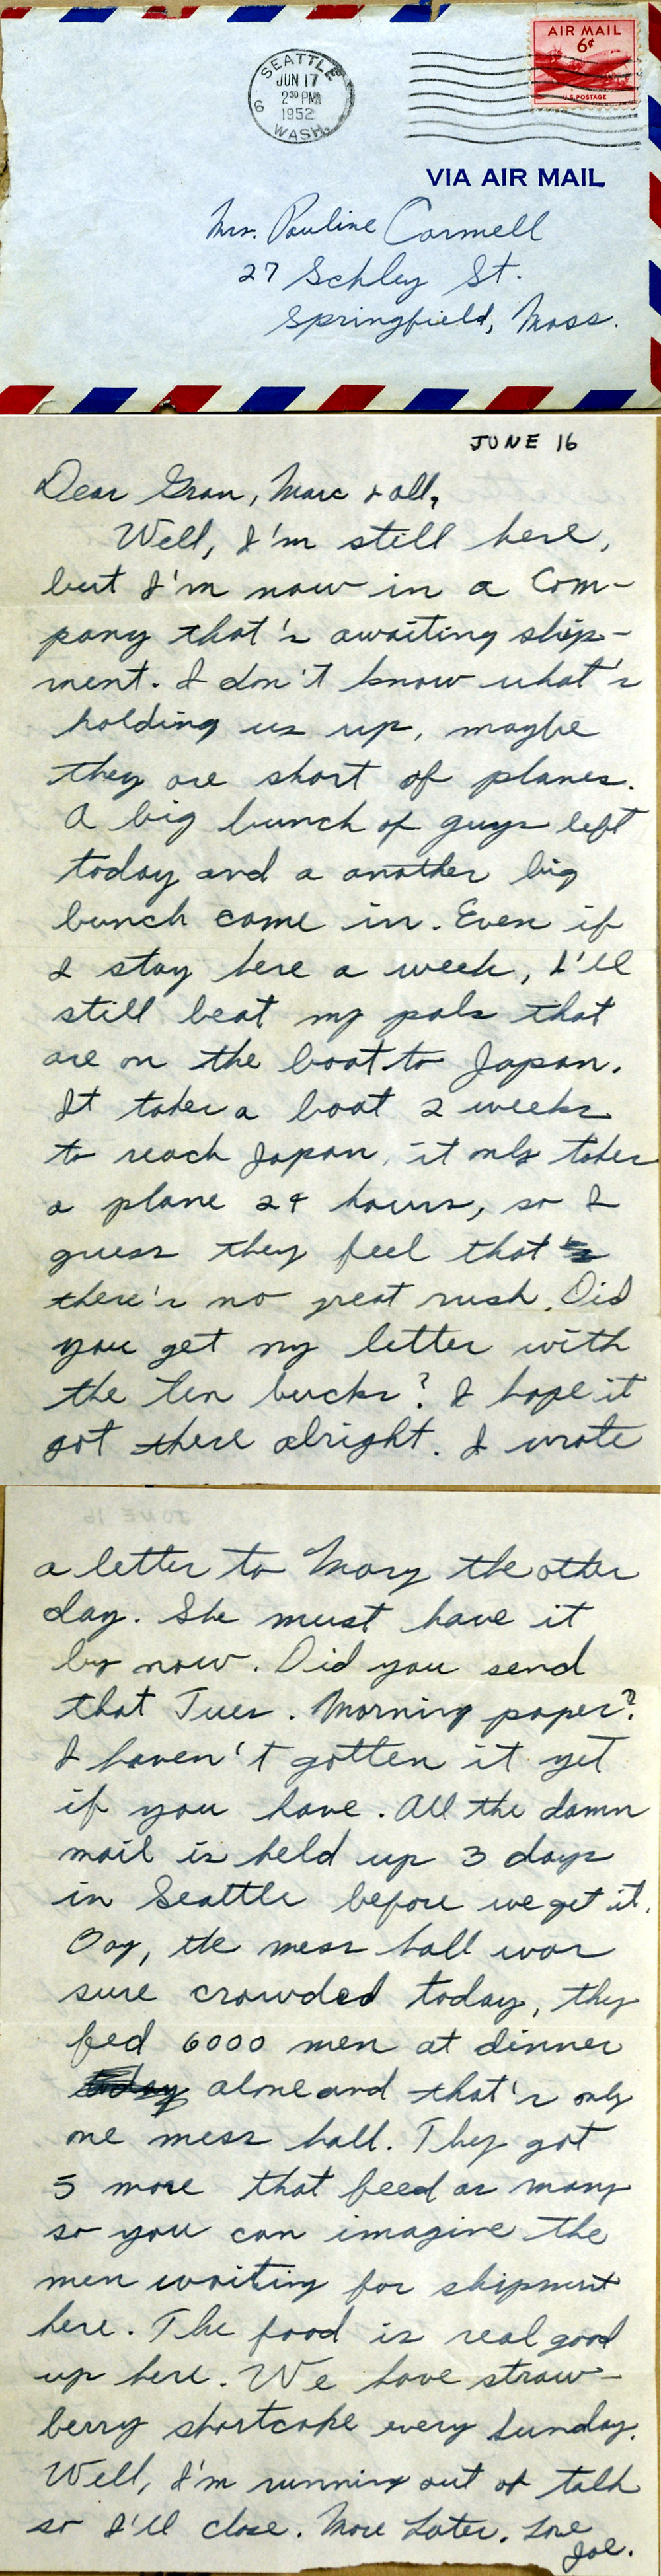 AIR MAIL
6¢
U.S. POSTAGE
SEATTLE
JUN 17
2 30 PM
1952
6
WASH.
VIA AIR MAIL
Mrs. Pauline Cormell
27 Schley St.
Springfield, Mass.
JUNE 16
Dear Gran, Marc & all,
Well, I'm still here,
but I'm now in a Com-
pany that's awaiting ship-
ment. I don't know what's
holding us up, maybe
they are short of planes.
A big bunch of guys left
today and a another big
bunch came in. Even if
I stay here a week, I'll
still beat my pals that
are on the boat to Japan.
It takes a boat 2 weeks
to reach Japan, it only takes
a plane 24 hours, so I
guess they feel that
there's no great rush. Did
you get my letter with
the ten bucks? I hope it
got there alright. I wrote
a letter to Mary the other
day. She must have it
by now. Did you send
that Tues. Morning paper?
I haven't gotten it yet
if you have. All the damn
mail is held up 3 days
in Seattle before we get it.
Boy, the mess hall was
sure crowded today, they
fed 6000 men at dinner
today alone and that's only
one mess hall. They got
5 more that feed as many
so you can imagine the
men waiting for shipment
here. The food is real good
up here. We have straw-
berry shortcake every Sunday.
Well, I'm running out of talk
so I'll close. More Later. Love
Joe.